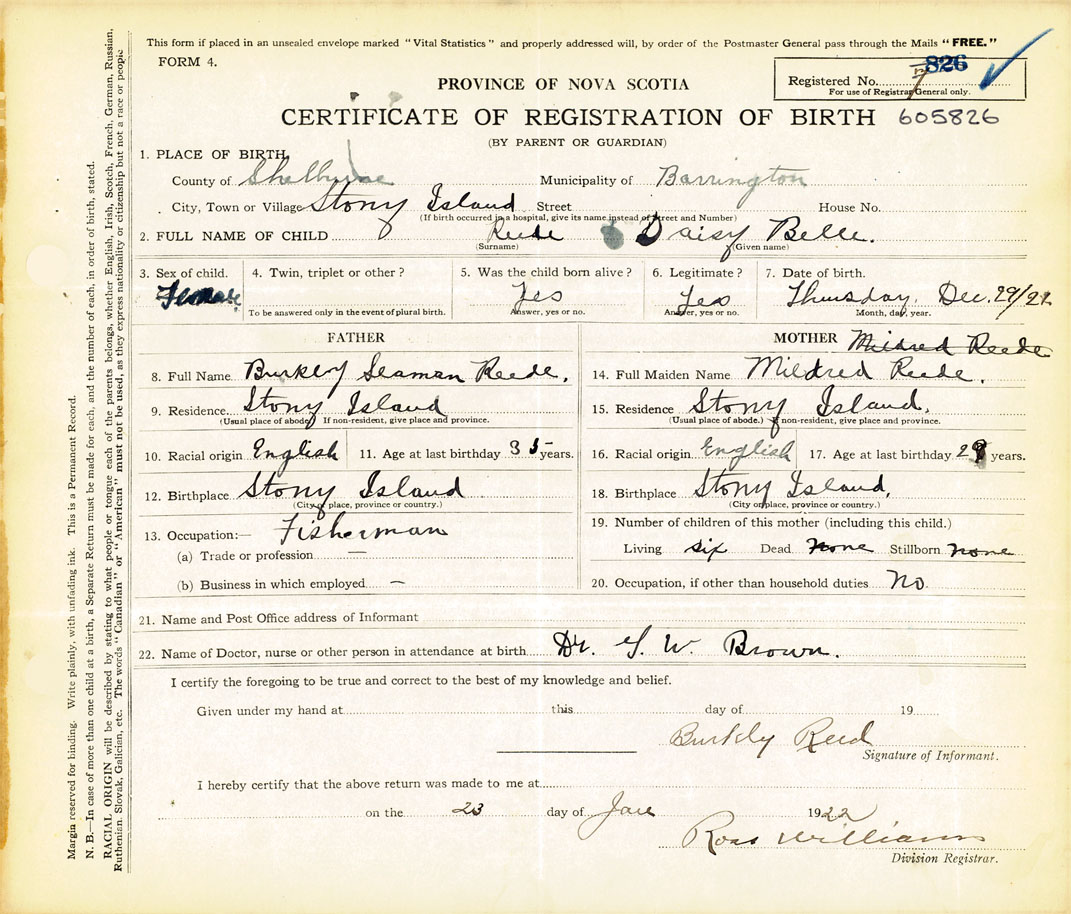 This form if placed in an unsealed envelope marked "Vital Statistics" and properly addressed will, by order of the Postmaster General pass through the Mails "FREE."
FORM 4.
826
Registered No.
For use of Registrar General only.
PROVINCE OF NOVA SCOTIA
CERTIFICATE OF REGISTRATION OF BIRTH 605826
(BY PARENT OR GUARDIAN)
1. PLACE OF BIRTH
County of Shelburne Municipality of Barrington
City, Town or Village Stony Island Street House No.
(If birth occurred in a hospital, give its name instead of Street and Number)
2. FULL NAME OF CHILD Reede Daisy Belle.
(Surname) (Given name)
3. Sex of child. 4. Twin, triplet or other? 5. Was the child born alive? 6. Legitimate? 7. Date of birth.
Female Yes Yes Thursday, Dec. 29/21
To be answered only in the event of plural birth. Answer, yes or no. Answer, yes or no. Month, day, year.
FATHER
8. Full Name Burkly Seaman Reede,
9. Residence Stony Island
(Usual place of abode) If non-resident, give place and province.
10. Racial origin English 11. Age at last birthday 35 years.
12. Birthplace Stony Island
(City or place, province or country.)
13. Occupation:— Fisherman
(a) Trade or profession —
(b) Business in which employed —
MOTHER Mildred Reede
14. Full Maiden Name Mildred Reede.
15. Residence Stony Island,
(Usual place of abode.) If non-resident, give place and province.
16. Racial origin English 17. Age at last birthday years.
18. Birthplace Stony Island,
(City or place, province or country.)
19. Number of children of this mother (including this child.)
Living six Dead None Stillborn none
20. Occupation, if other than household duties No.
21. Name and Post Office address of Informant
22. Name of Doctor, nurse or other person in attendance at birth Dr. W. Brown.
I certify the foregoing to be true and correct to the best of my knowledge and belief.
Given under my hand at this day of 19
Burkly Reed
Signature of Informant.
I hereby certify that the above return was made to me at
on the 23 day of Jan 1922
Ross Williams
Division Registrar.
Margin reserved for binding. Write plainly, with unfading ink. This is a Permanent Record.
N. B.—In case of more than one child at a birth, a Separate Return must be made for each, and the number of each, in order of birth, stated.
RACIAL ORIGIN will be described by stating to what people or tongue each of the parents belongs, whether English, Irish, Scotch, French, German, Russian,
Ruthenian, Slovak, Galician, etc. The words "Canadian" or "American" must not be used, as they express nationality or citizenship but not a race or people